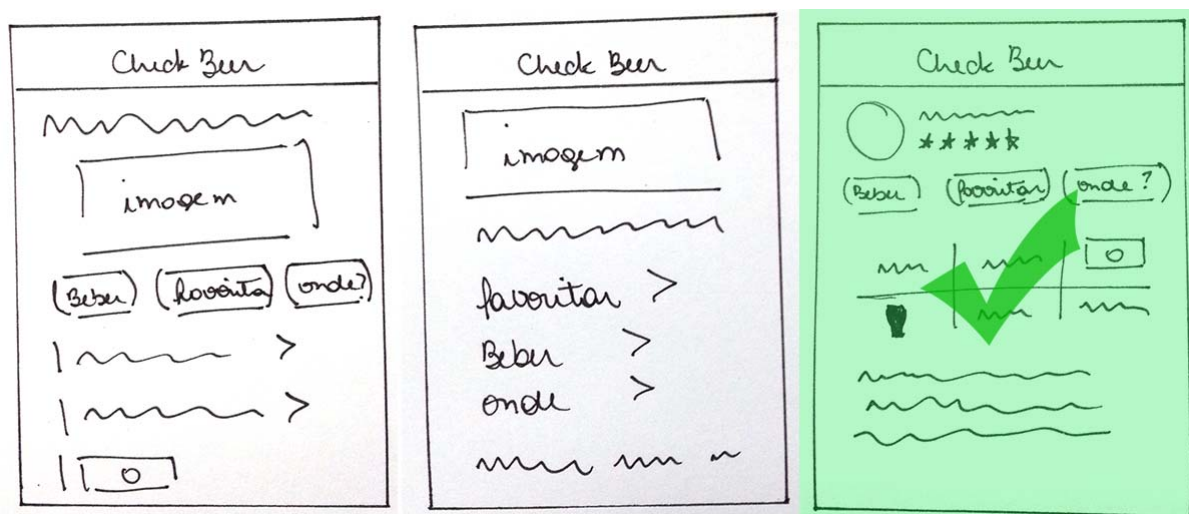 Check Beer
imagem
Beber favoritar onde?
Check Beer
imagem
favoritar >
Beber >
onde >
Check Beer
Beber favoritar onde?